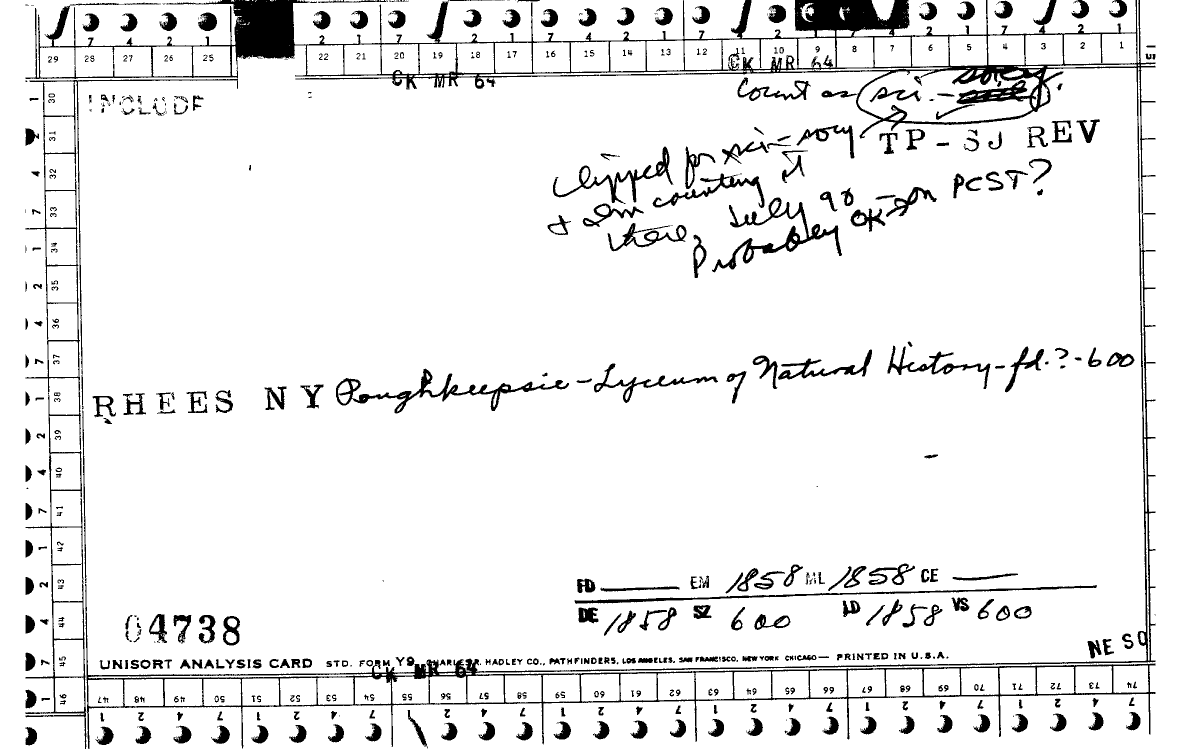 7 4 2 1 2 1 7 4 2 1 7 4 2 1 7 4 2 1 7 4 2 1
29 28 27 26 25 22 21 20 19 18 17 16 15 14 13 12 11 10 9 8 7 6 5 4 3 2 1
CK MR 64 CK MR 64
INCLUDE
Count as sci.-
TP-SJ REV
clipped for sci-socy
+ I'm counting it
there, July 90
Probably OK in PCST?
RHEES NY Poughkeepsie-Lyceum of Natural History-fd.?-600
FD EM 1858 ML 1858 CE
DE 1858 SZ 600 LD 1858 VS 600
04738
NE SO
UNISORT ANALYSIS CARD STD. FORM Y9 CHARLES R. HADLEY CO., PATHFINDERS, LOS ANGELES, SAN FRANCISCO, NEW YORK CHICAGO— PRINTED IN U.S.A.
CK MR 64
1 30
2 31
4 32
7 33
1 34
2 35
4 36
7 37
1 38
2 39
4 40
7 41
1 42
2 43
4 44
7 45
1 46
47 48 49 50 51 52 53 54 55 56 57 58 59 60 61 62 63 64 65 66 67 68 69 70 71 72 73 74
1 2 4 7 1 2 4 7 1 2 4 7 1 2 4 7 1 2 4 7 1 2 4 7 1 2 4 7